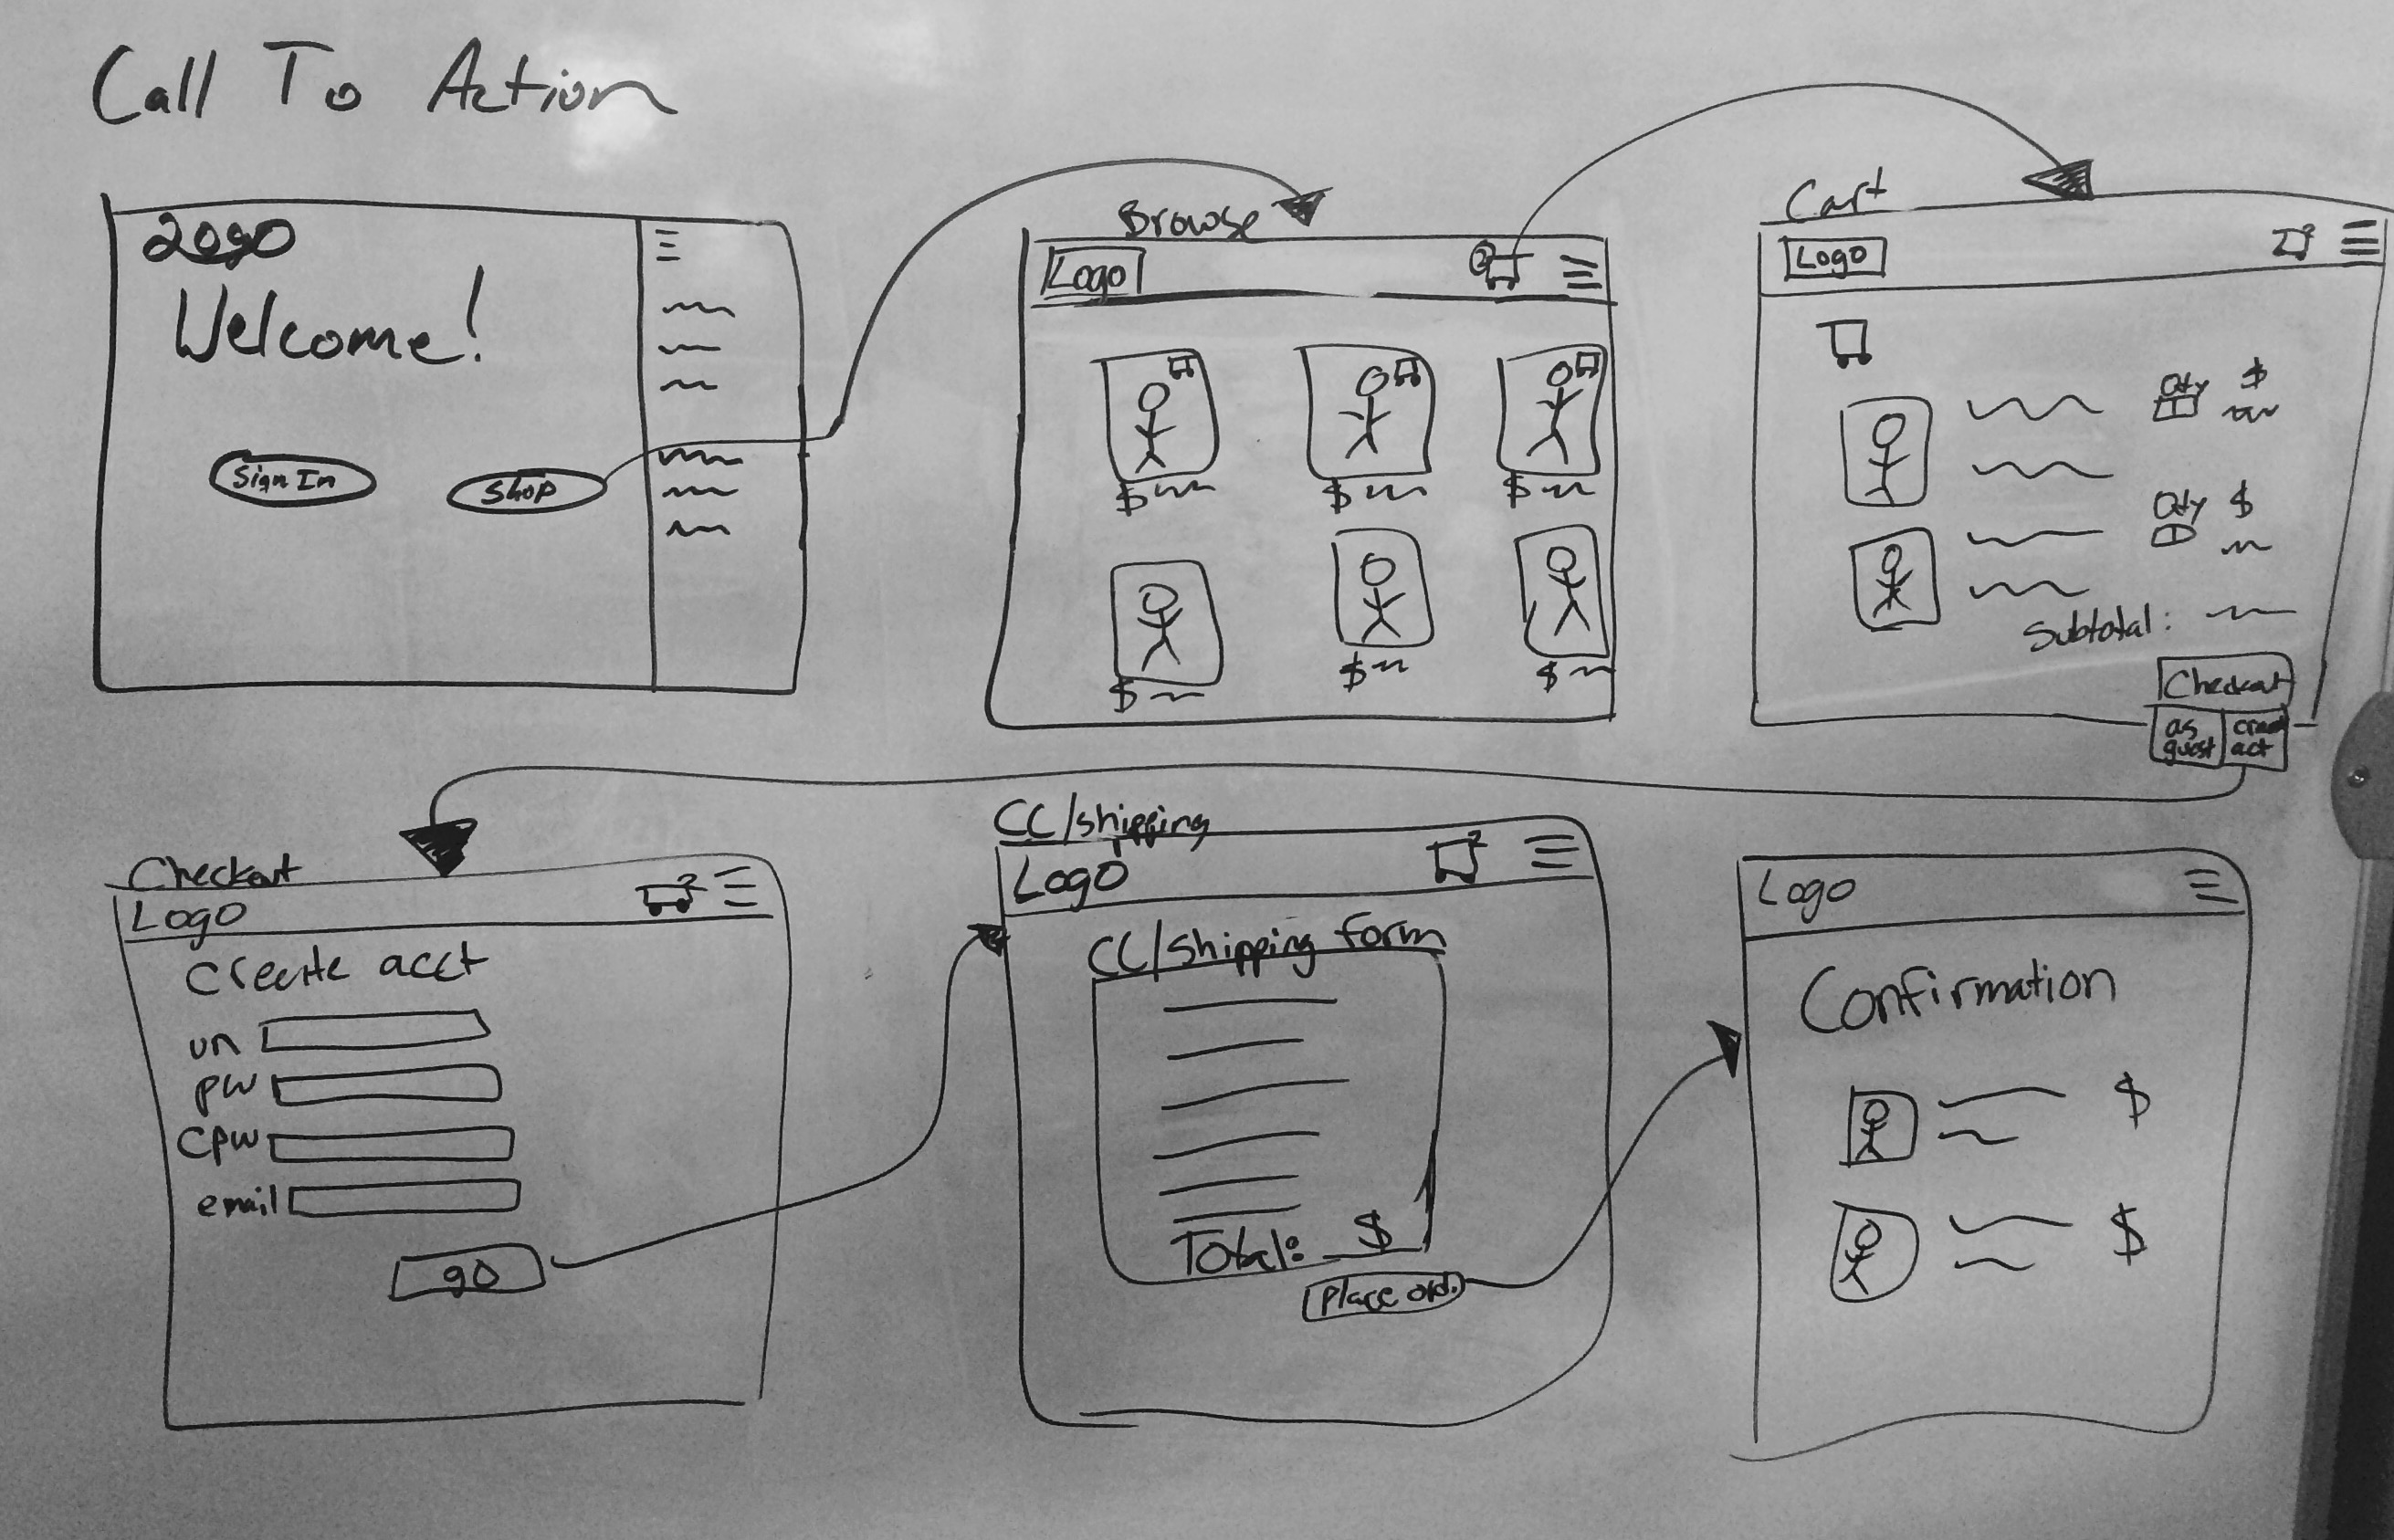 Call To Action
Logo
Welcome!
Sign In
Shop
Browse
Logo
2
$
$
$
$
$
$
Cart
Logo
2
Qty
$
Qty
$
Subtotal:
Checkout
as guest
act
Checkout
Logo
2
Create acct
un
pw
cpw
email
go
CC/shipping
Logo
2
CC/Shipping form
Total: $
Place ord.
Logo
Confirmation
$
$